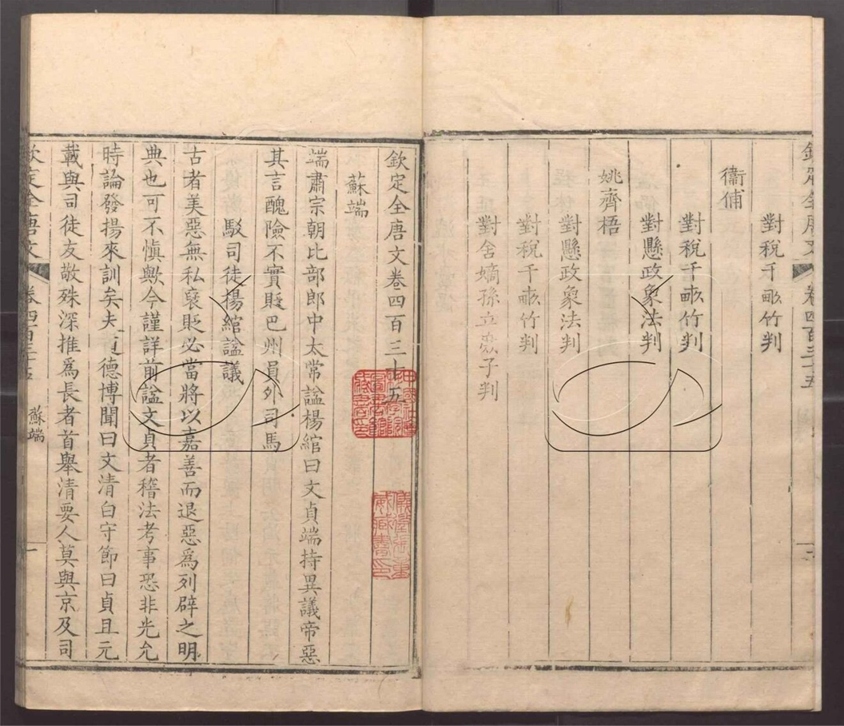 對稅千畝竹判
衞俌
對稅千畝竹判
對懸政象法判
姚齊梧
對懸政象法判
對稅千畝竹判
對舍嫡孫立庶子判
欽定全唐文卷四百三十五
蘇端
端肅宗朝比部郎中太常謚楊綰曰文貞端持異議帝惡
其言醜險不實貶巴州員外司馬
駁司徒楊綰謚議
古者美惡無私褒貶必當將以嘉善而退惡爲列辟之明
典也可不愼歟今謹詳前謚文貞者稽法考事恐非光允
時論發揚來訓矣夫道德博聞曰文清白守節曰貞且元
載與司徒友敬殊深推爲長者首舉清要人莫與京及司
欽定全唐文 卷四百三十五 蘇端 一